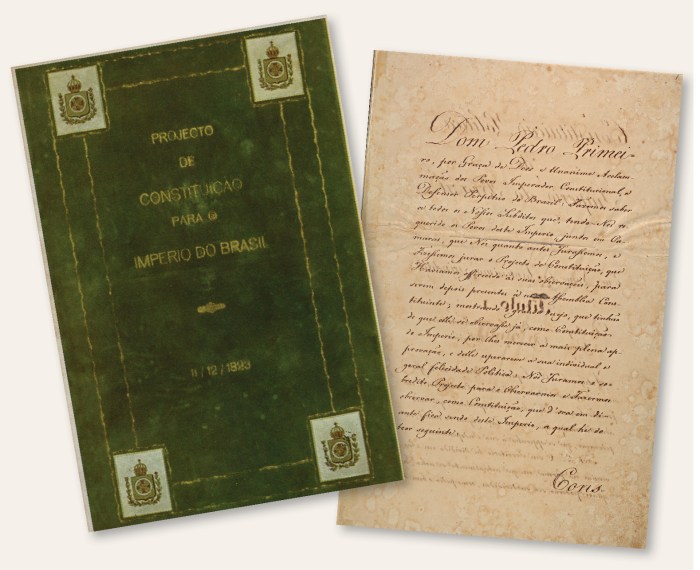 PROJECTO
DE
CONSTITUIÇÃO
PARA O
IMPERIO DO BRASIL
11/12/1823
Dom Pedro Primei-
ro, por Graça de Deos e Unanime Acla-
mação dos Povos Imperador Constitucional, e
Defensor Perpetuo do Brasil: Fazemos saber
a todos os Nossos Subditos que, tendo Nos re-
querido os Povos deste Imperio, juntos em Ca-
maras, que Nós quanto antes Jurassemos, e
Fizessemos jurar o Projecto de Constituição, que
Haviamos offerecido ás suas observações, para
serem depois presentes á nova Assembléa Cons-
tituinte; mostrando o desejo, que tinhão
de que elle se observasse já como Constituição
do Imperio, por lhes merecer a mais plena ap-
provação, e delle esperarem a sua individual e
geral felicidade Politica: Nós Juramos o so-
bredito Projecto para o Observarmos e Fazermos
observar, como Constituição, que d'ora em di-
ante fica sendo deste Imperio, a qual he do
theor seguinte:
Cons